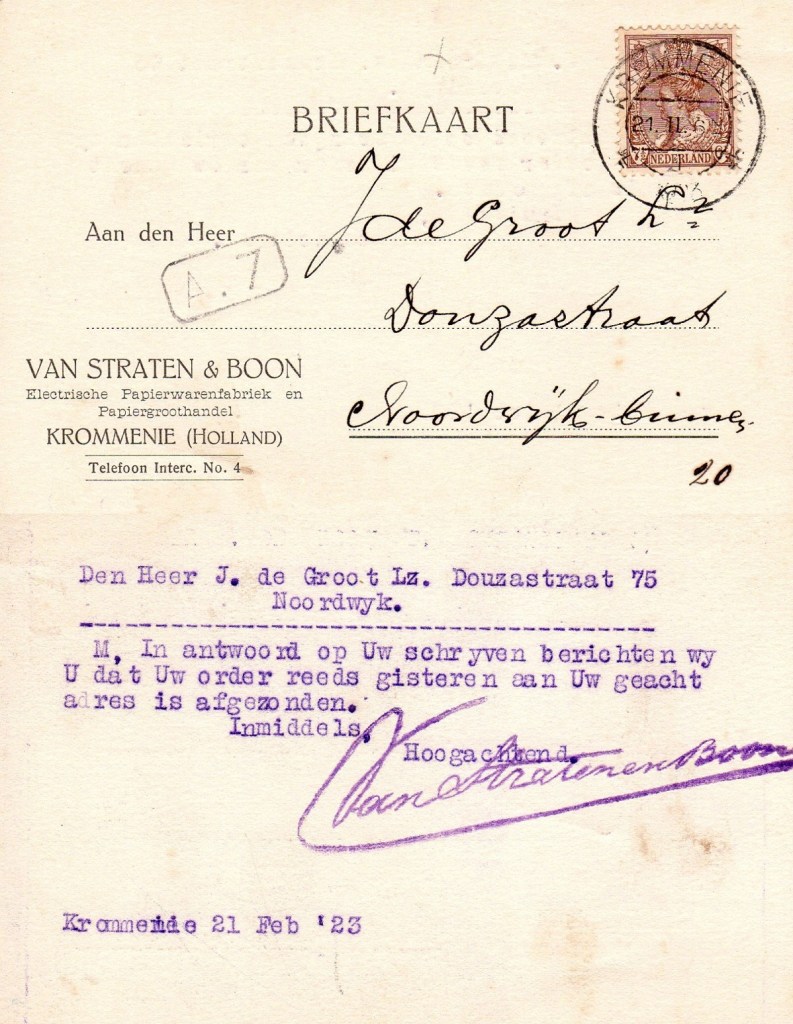 BRIEFKAART
KROMMENIE
21. II.
7½ NEDERLAND
Aan den Heer J de Groot Lz
A. 7
Douzastraat
VAN STRATEN & BOON
Electrische Papierwarenfabriek en
Papiergroothandel
KROMMENIE (HOLLAND)
Telefoon Interc. No. 4
Noordwijk-binnen
20
Den Heer J. de Groot Lz. Douzastraat 75
Noordwyk.
M, In antwoord op Uw schryven berichten wy
U dat Uw order reeds gisteren aan Uw geacht
adres is afgezonden.
Inmiddels,
Hoogachtend.
Van Straten en Boon
Krommenie 21 Feb '23